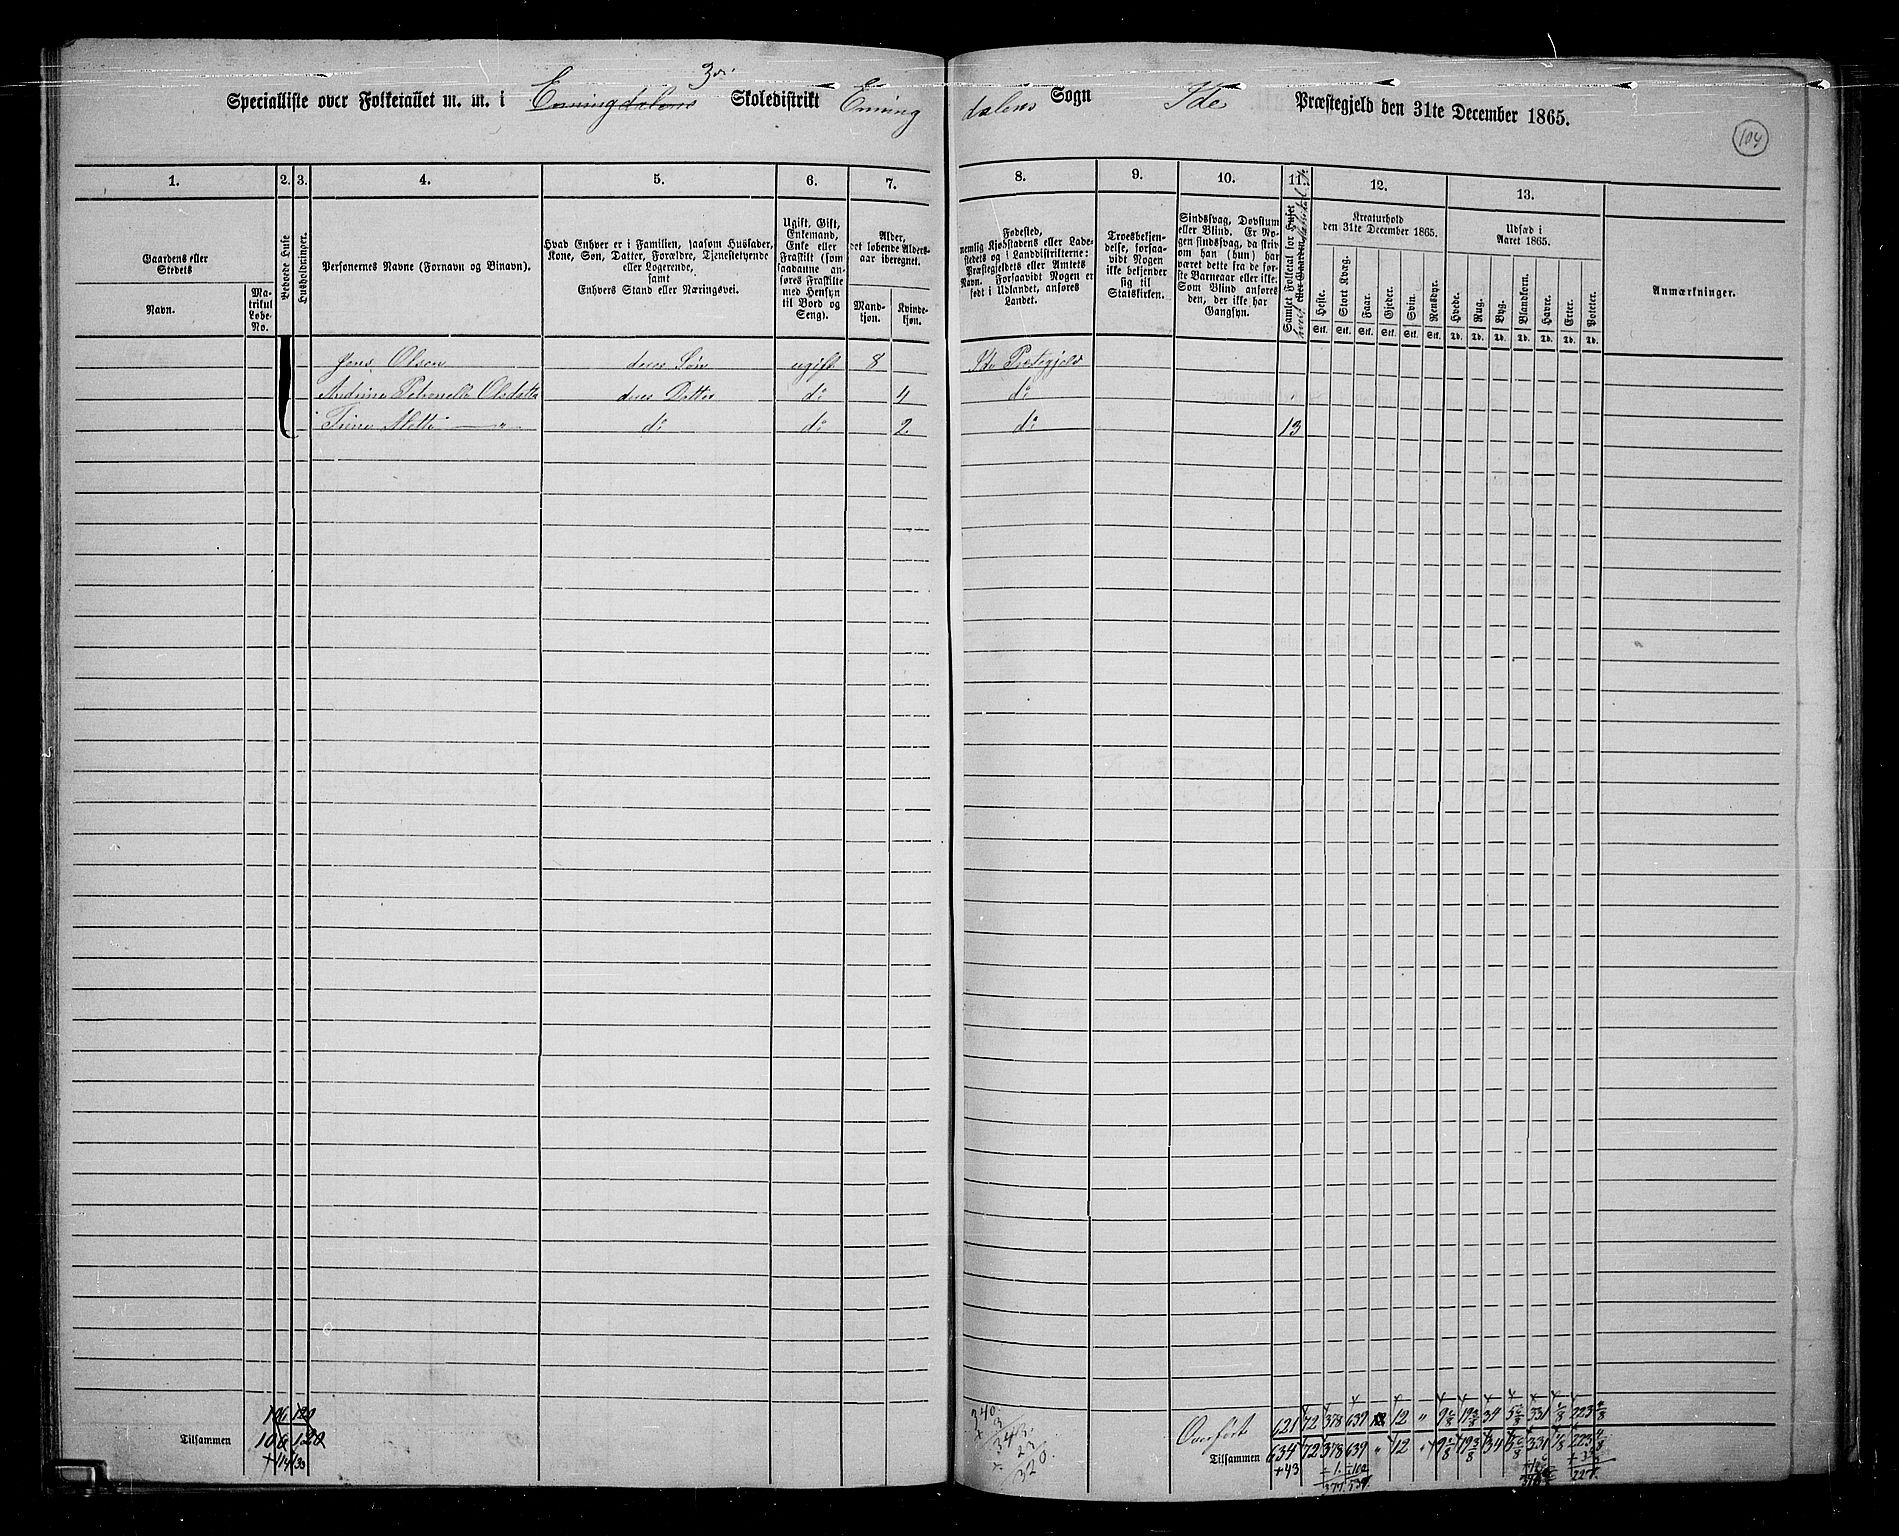 3die
Specialliste over Folketallet m. m. i Enningdalens Skoledistrikt Enning
dalens Sogn Ide Præstegjeld den 31te December 1865.
104
1. 2. 3. 4. 5. 6. 7. 8. 9. 10. 11. 12. 13.
Gaardens eller Stedets
Navn.
Matrikul Løbe-No.
Beboede Huse
Husholdninger.
Personernes Navne (Fornavn og Binavn).
Hvad Enhver er i Familien, saasom Husfader, Kone, Søn, Datter, Forældre, Tjenestetyende eller Logerende, samt Enhvers Stand eller Næringsvei.
Ugift, Gift, Enkemand, Enke eller Fraskilt (som saadanne anføres Fraskilte med Hensyn til Bord og Seng).
Alder, det løbende Aldersaar iberegnet.
Mandkjøn.
Kvindekjøn.
Fødested, nemlig Kjøbstadens eller Ladestedets og i Landdistrikterne: Præstegjeldets eller Amtets Navn. Forsaavidt Nogen er født i Udlandet, anføres Landet.
Troesbekjendelse, forsaavidt Nogen ikke bekjender sig til Statskirken.
Sindssvag, Døvstum eller Blind. Er Nogen sindssvag, da skriv om han (hun) har været dette fra de første Barneaar eller ikke. Som Blind anføres den, der ikke har Gangsyn.
Samlet Folketal for Huset
Kreaturhold den 31te December 1865.
Heste. Stort Kvæg. Faar. Gjeder. Svin. Rensdyr.
Udsæd i Aaret 1865.
Hvede. Rug. Byg. Blandkorn. Havre. Erter. Poteter.
Stk. Stk. Stk. Stk. Stk. Stk. Td. Td. Td. Td. Td. Td. Td.
Anmærkninger.
Jens Olsen deres Søn ugift 8 Ide Præstegjeld
Andrine Petronelle Olsdatter deres Datter do 4 do
Trine Mette — " — do do 2 do 13
106 120
Overført 621 72 378 639 12 " 331 223
Tilsammen 106 120
Tilsammen 634 72 378 639 " 12 " 34 331 223
+43
340
343
23
320
377 539